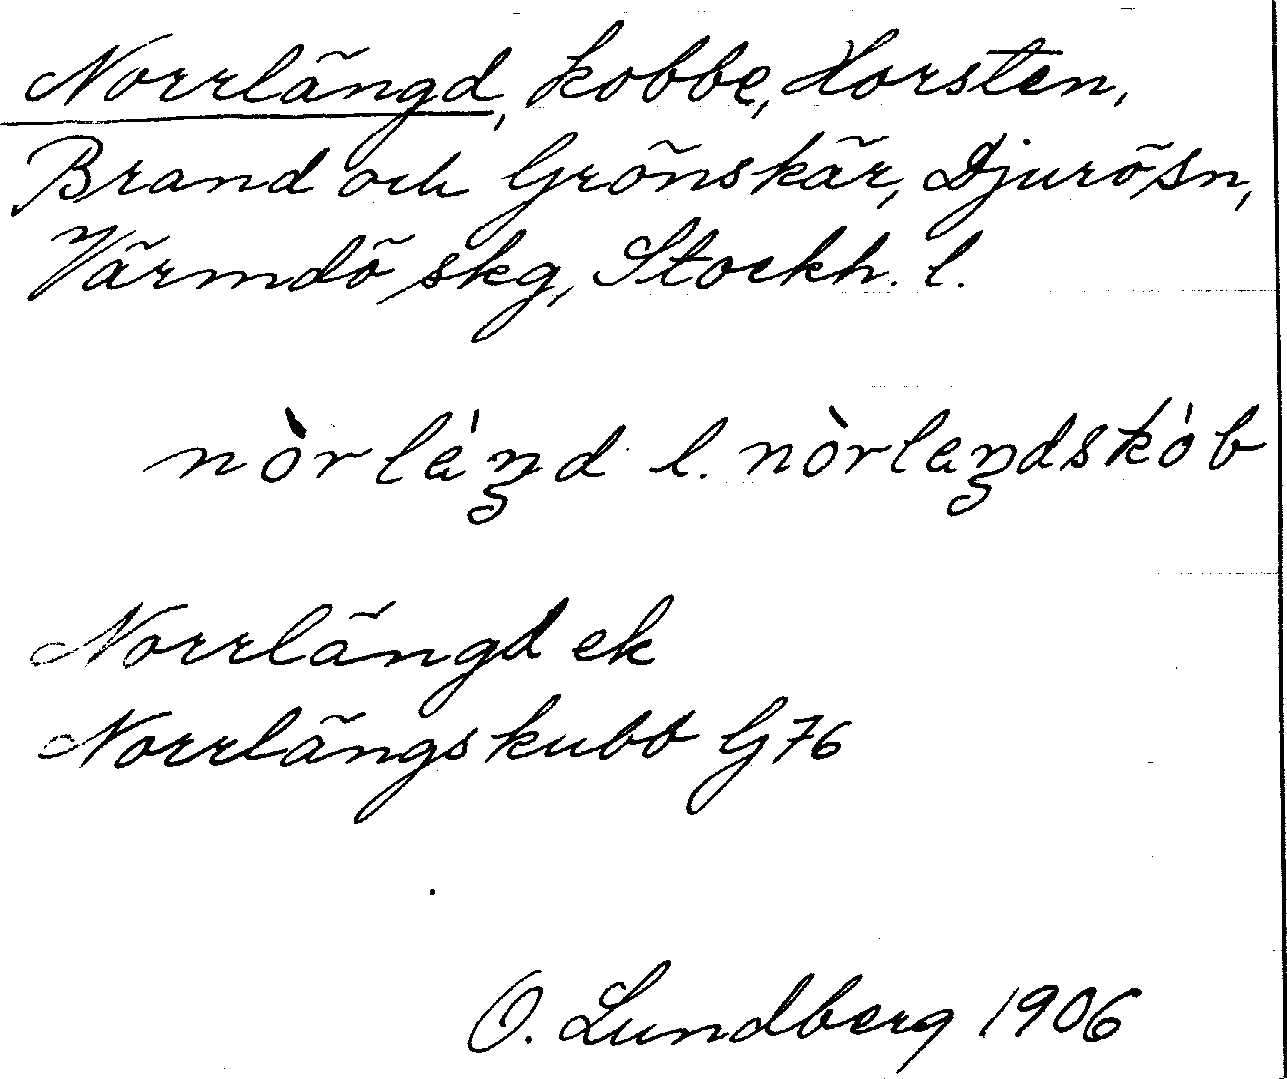 Norrlängd, kobbe, Horsten,
Brand och Grönskär, Djurö sn,
Värmdö skg, Stockh. l.
nòrléŋd l. nòrleŋdskób
Norrlängd ek
Norrlängskubb G76
O. Lundberg 1906